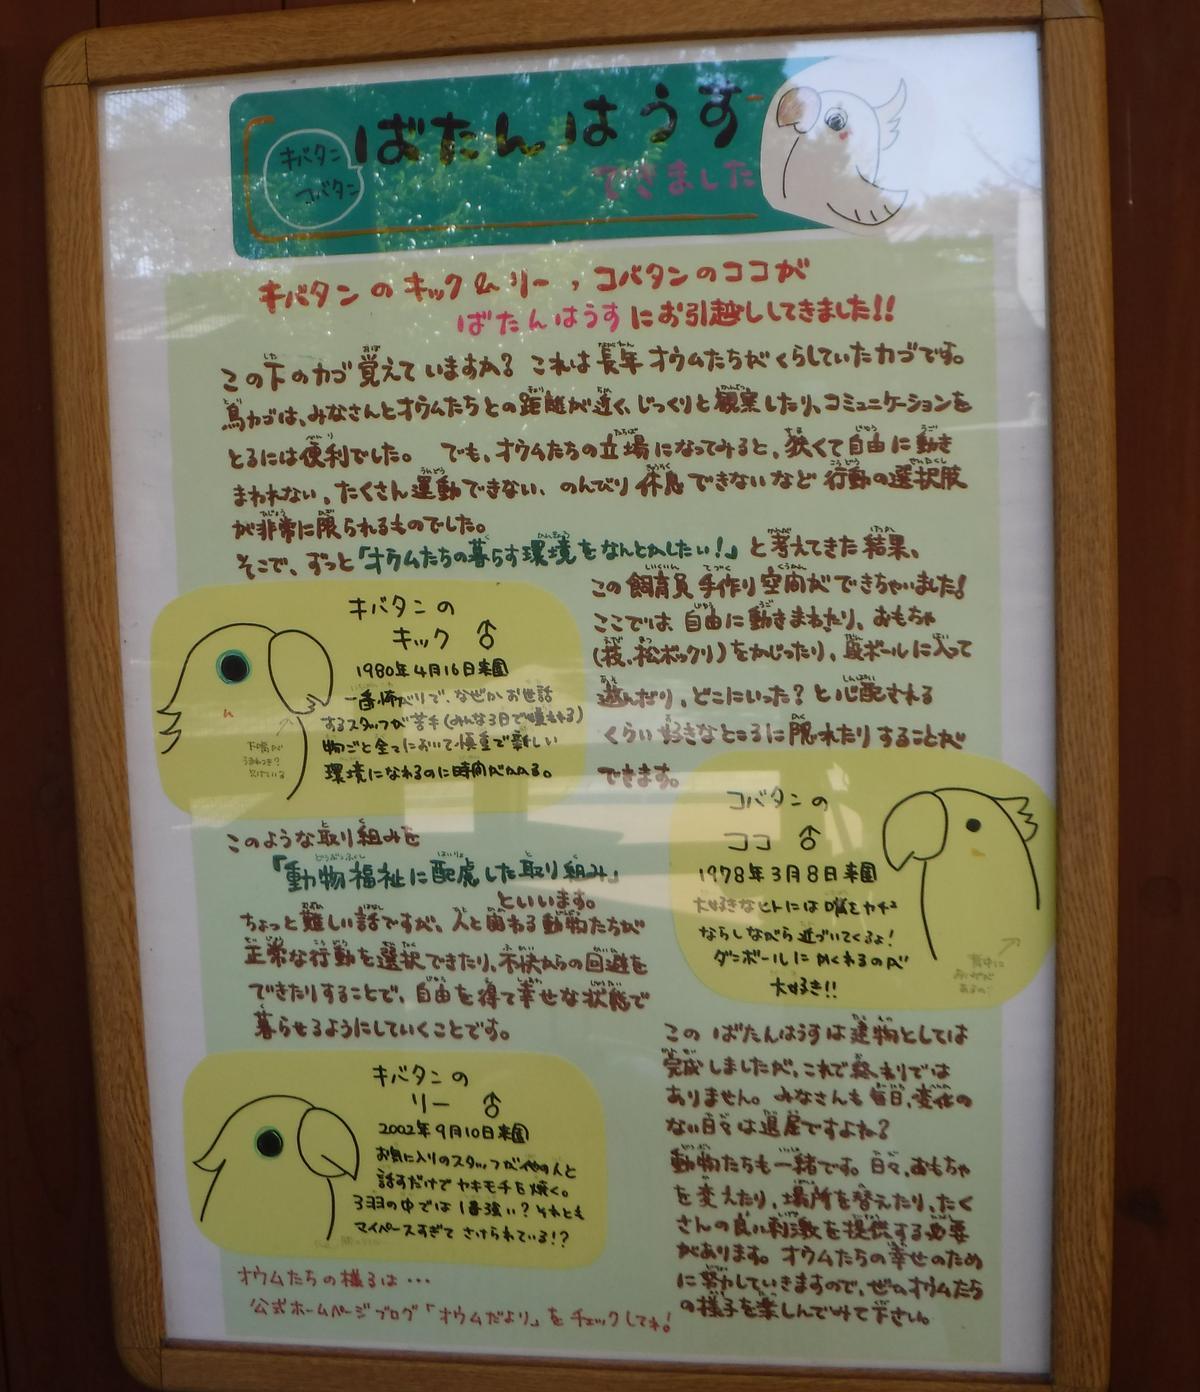 キバタン
コバタン
ばたんはうす
できました
キバタンのキック&リー、コバタンのココが
ばたんはうすにお引越ししてきました!!
この下のカゴ覚えていますか? これは長年オウムたちがくらしていたカゴです。
鳥カゴは、みなさんとオウムたちとの距離が近く、じっくりと観察したり、コミュニケーションを
とるには便利でした。 でも、オウムたちの立場になってみると、狭くて自由に動き
まわれない、たくさん運動できない、のんびり休息できないなど行動の選択肢
が非常に限られるものでした。
そこで、ずっと「オウムたちの暮らす環境をなんとかしたい!」と考えてきた結果、
この飼育員手作り空間ができちゃいました!
ここでは自由に動きまわったり、おもちゃ
(枝、松ボックリ)をかじったり、段ボールに入って
遊んだり、どこにいった?と心配される
くらい好きなところに隠れたりすることが
できます。
キバタンの
キック ♂
1980年4月16日来園
一番怖がりで、なぜかお世話
するスタッフが苦手(みんな3日で嫌われる)
物ごと全てにおいて慎重で新しい
環境になれるのに時間がかかる。
下嘴が
欠けている
コバタンの
ココ ♂
1978年3月8日来園
大好きなヒトには嘴をカチカチ
ならしながら近づいてくるよ!
ダンボールにかくれるのが
大好き!!
背中に
このような取り組みを
「動物福祉に配慮した取り組み」
といいます。
ちょっと難しい話ですが、人と関わる動物たちが
正常な行動を選択できたり、不快からの回避を
できたりすることで、自由を得て幸せな状態で
暮らせるようにしていくことです。
キバタンの
リー ♂
2002年9月10日来園
お気に入りのスタッフが他の人と
話すだけでヤキモチを焼く。
3羽の中では1番強い?それとも
マイペースすぎてさけられている!?
この ばたんはうすは建物としては
完成しましたが、これで終わりでは
ありません。みなさんも毎日、変化の
ない日々は退屈ですよね?
動物たちも一緒です。日々、おもちゃ
を変えたり、場所を替えたり、たく
さんの良い刺激を提供する必要
があります。オウムたちの幸せのため
に努力していきますので、ぜひオウムたち
の様子を楽しんでみて下さい。
オウムたちの様子は・・・
公式ホームページブログ「オウムだより」をチェックしてね!